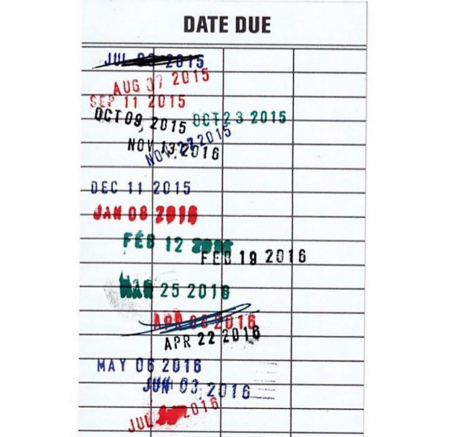 DATE DUE
JUL 2015
AUG 07 2015
SEP 11 2015
OCT 09, 2015
OCT 23 2015
NOV 13 2016
NOV 27 2015
DEC 11 2015
JAN 08 2016
FEB 12 2016
FEB 19 2016
MAR 25 2016
APR 08 2016
APR 22 2016
MAY 06 2016
JUN 03, 2016
JUL 2016